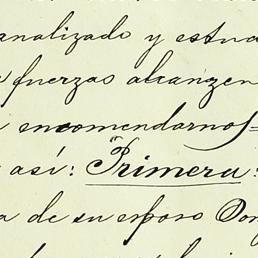 analizado y estud
fuerzas alcanzen
encomendarnos=
así: "Primera:
a de su esposo Don